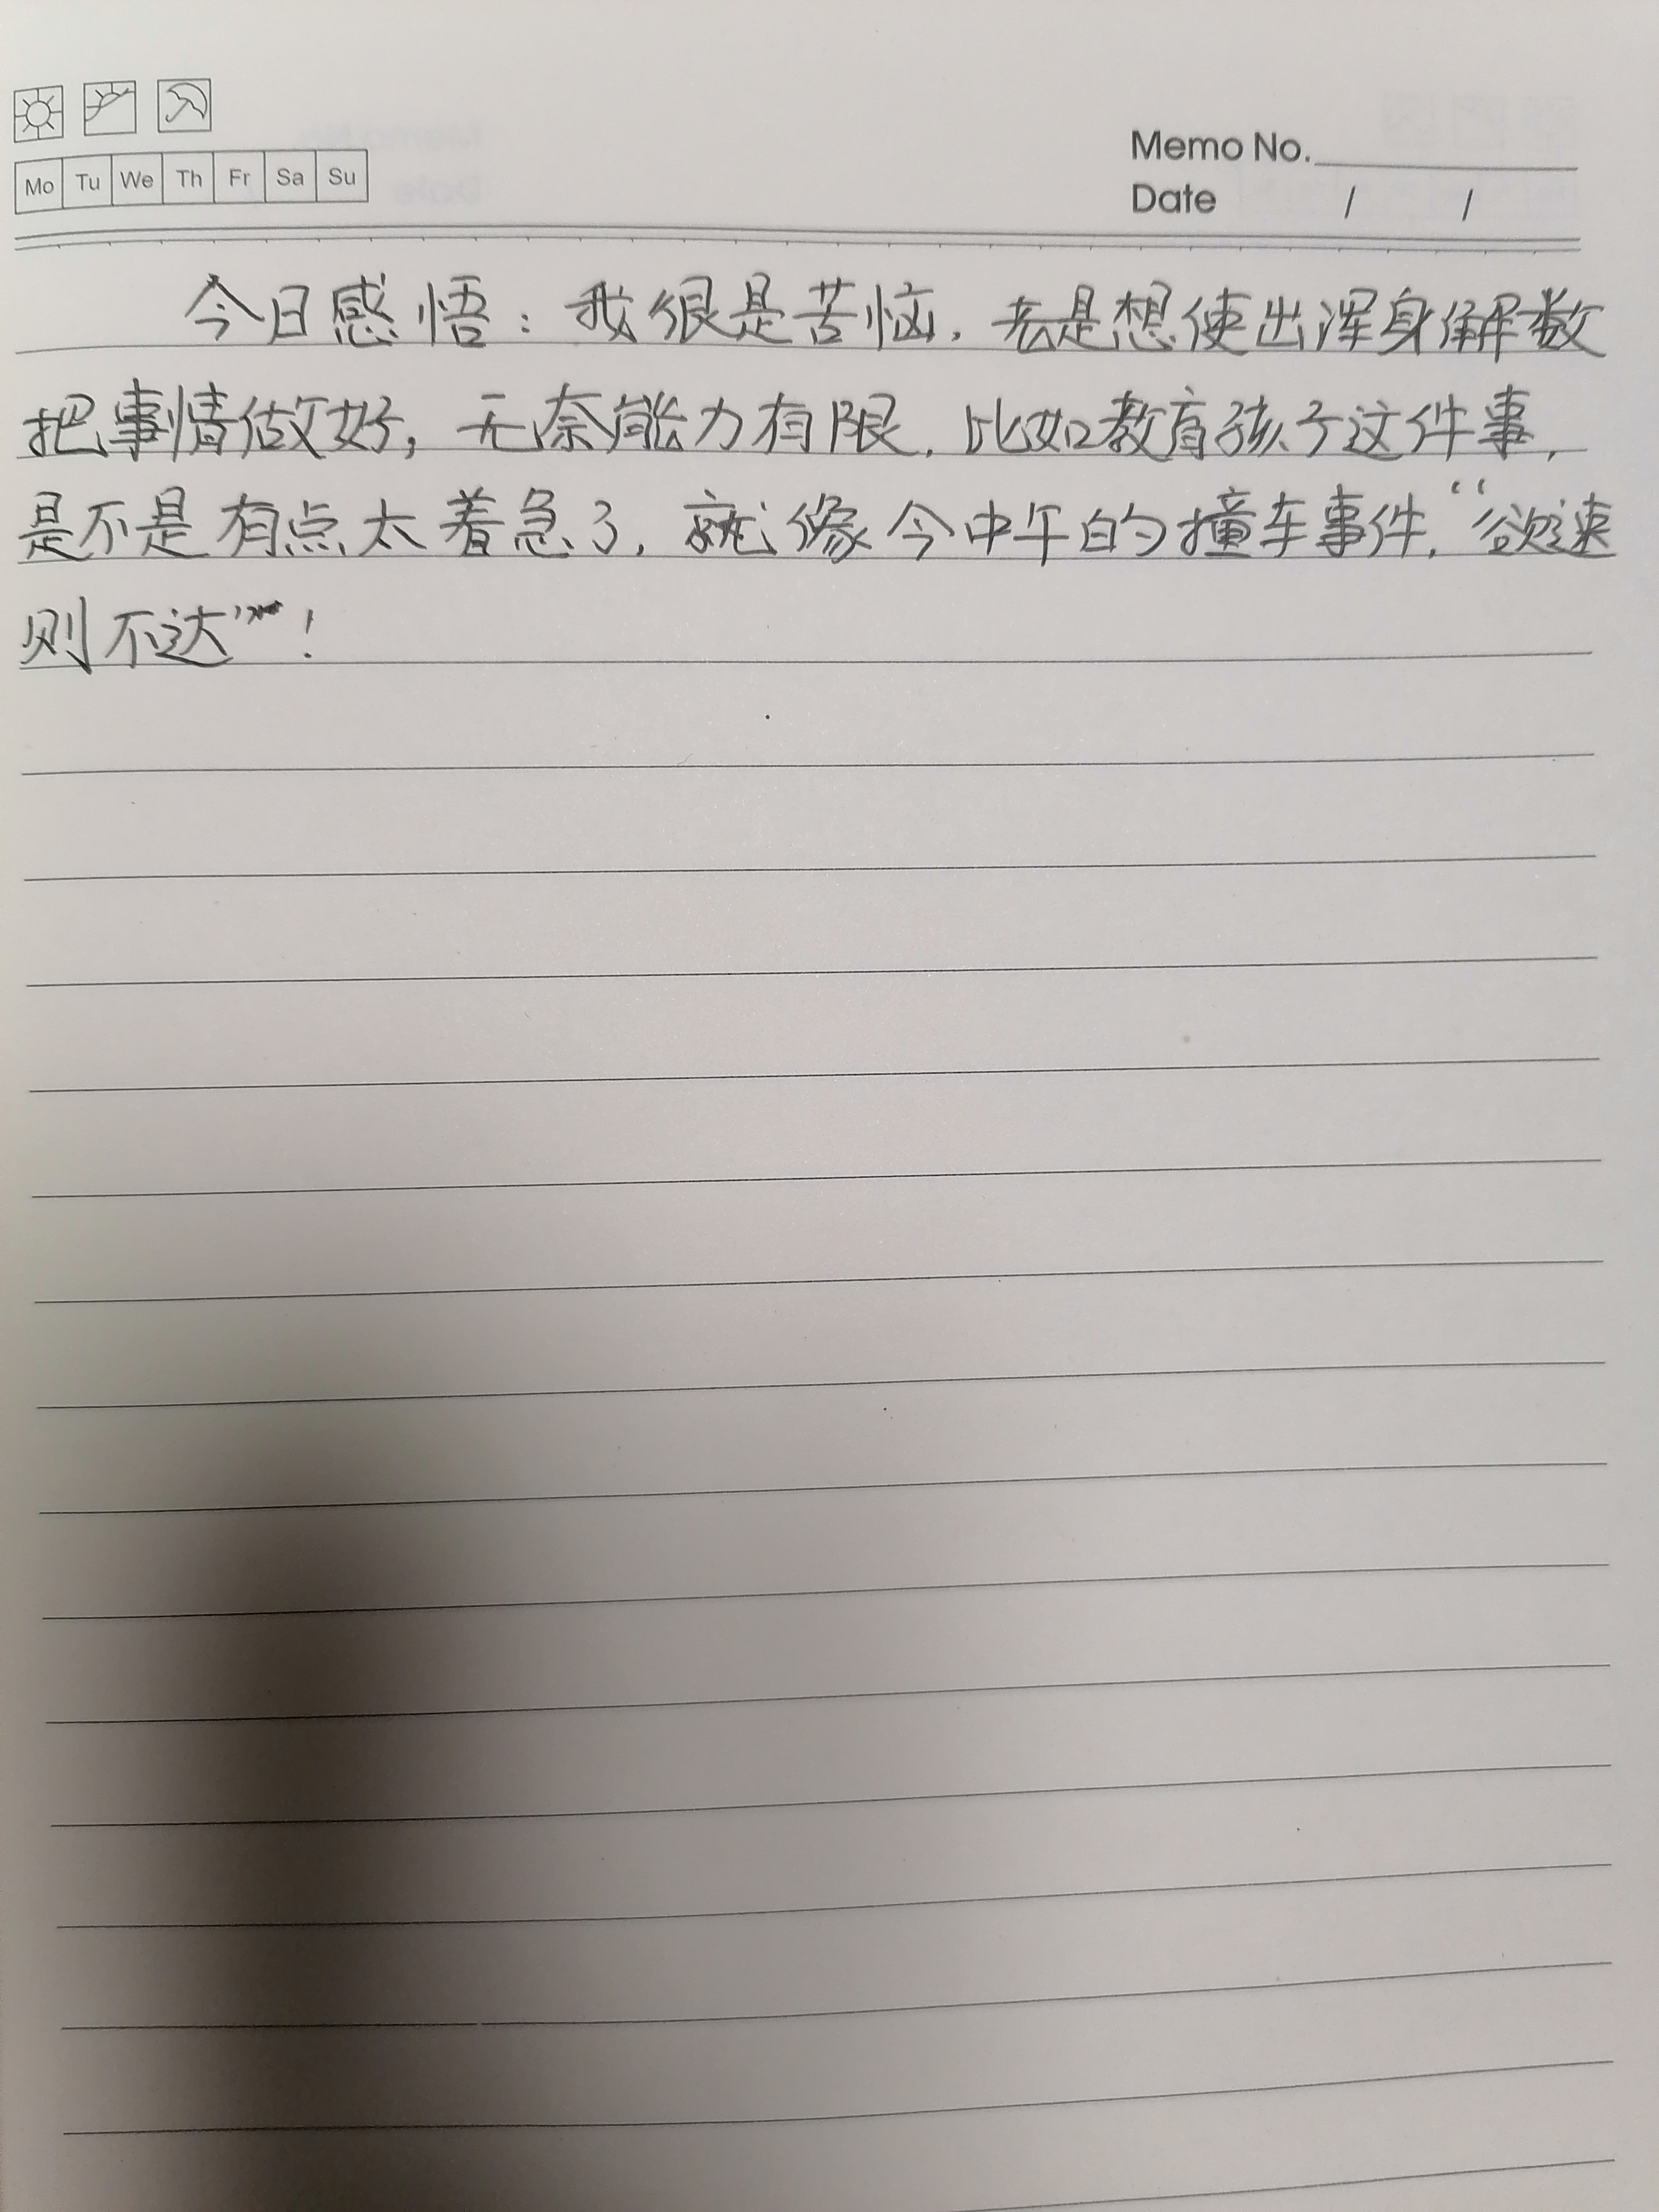 Mo Tu We Th Fr Sa Su
Memo No.
Date / /
今日感悟：我很是苦恼，老是想使出浑身解数
把事情做好，无奈能力有限，比如教育孩子这件事，
是不是有点太着急了，就像今中午的撞车事件，“欲速
则不达”！